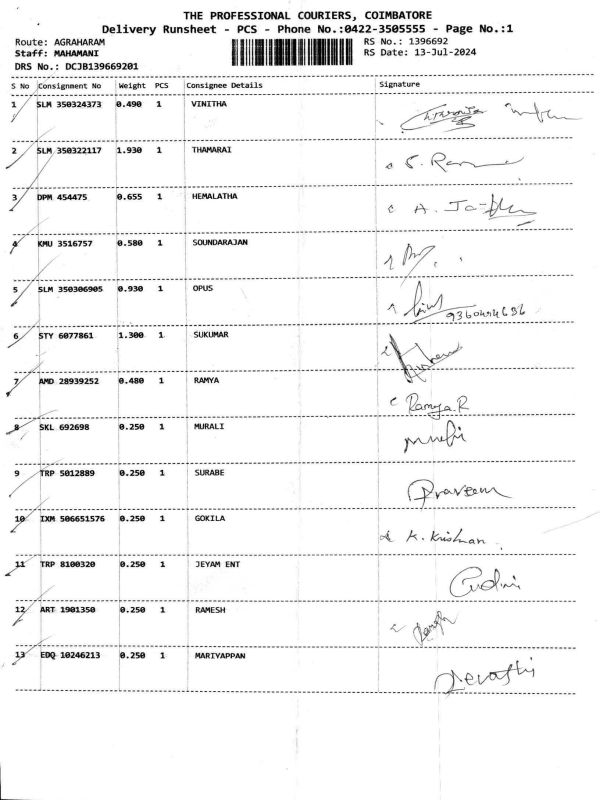 THE PROFESSIONAL COURIERS, COIMBATORE
Delivery Runsheet - PCS - Phone No.:0422-3505555 - Page No.:1
Route: AGRAHARAM RS No.: 1396692
Staff: MAHAMANI RS Date: 13-Jul-2024
DRS No.: DCJB139669201
S No Consignment No Weight PCS Consignee Details Signature
1 SLM 350324373 0.490 1 VINITHA
2 SLM 350322117 1.930 1 THAMARAI
3 DPM 454475 0.655 1 HEMALATHA
4 KMU 3516757 0.580 1 SOUNDARAJAN
5 SLM 350306905 0.930 1 OPUS
6 STY 6077861 1.300 1 SUKUMAR
7 AMD 28939252 0.480 1 RAMYA Ramya.R
8 SKL 692698 0.250 1 MURALI
9 TRP 5012889 0.250 1 SURABE Praveen
10 IXM 506651576 0.250 1 GOKILA K. Krishnan
11 TRP 8100320 0.250 1 JEYAM ENT
12 ART 1901350 0.250 1 RAMESH
13 EDQ 10246213 0.250 1 MARIYAPPAN